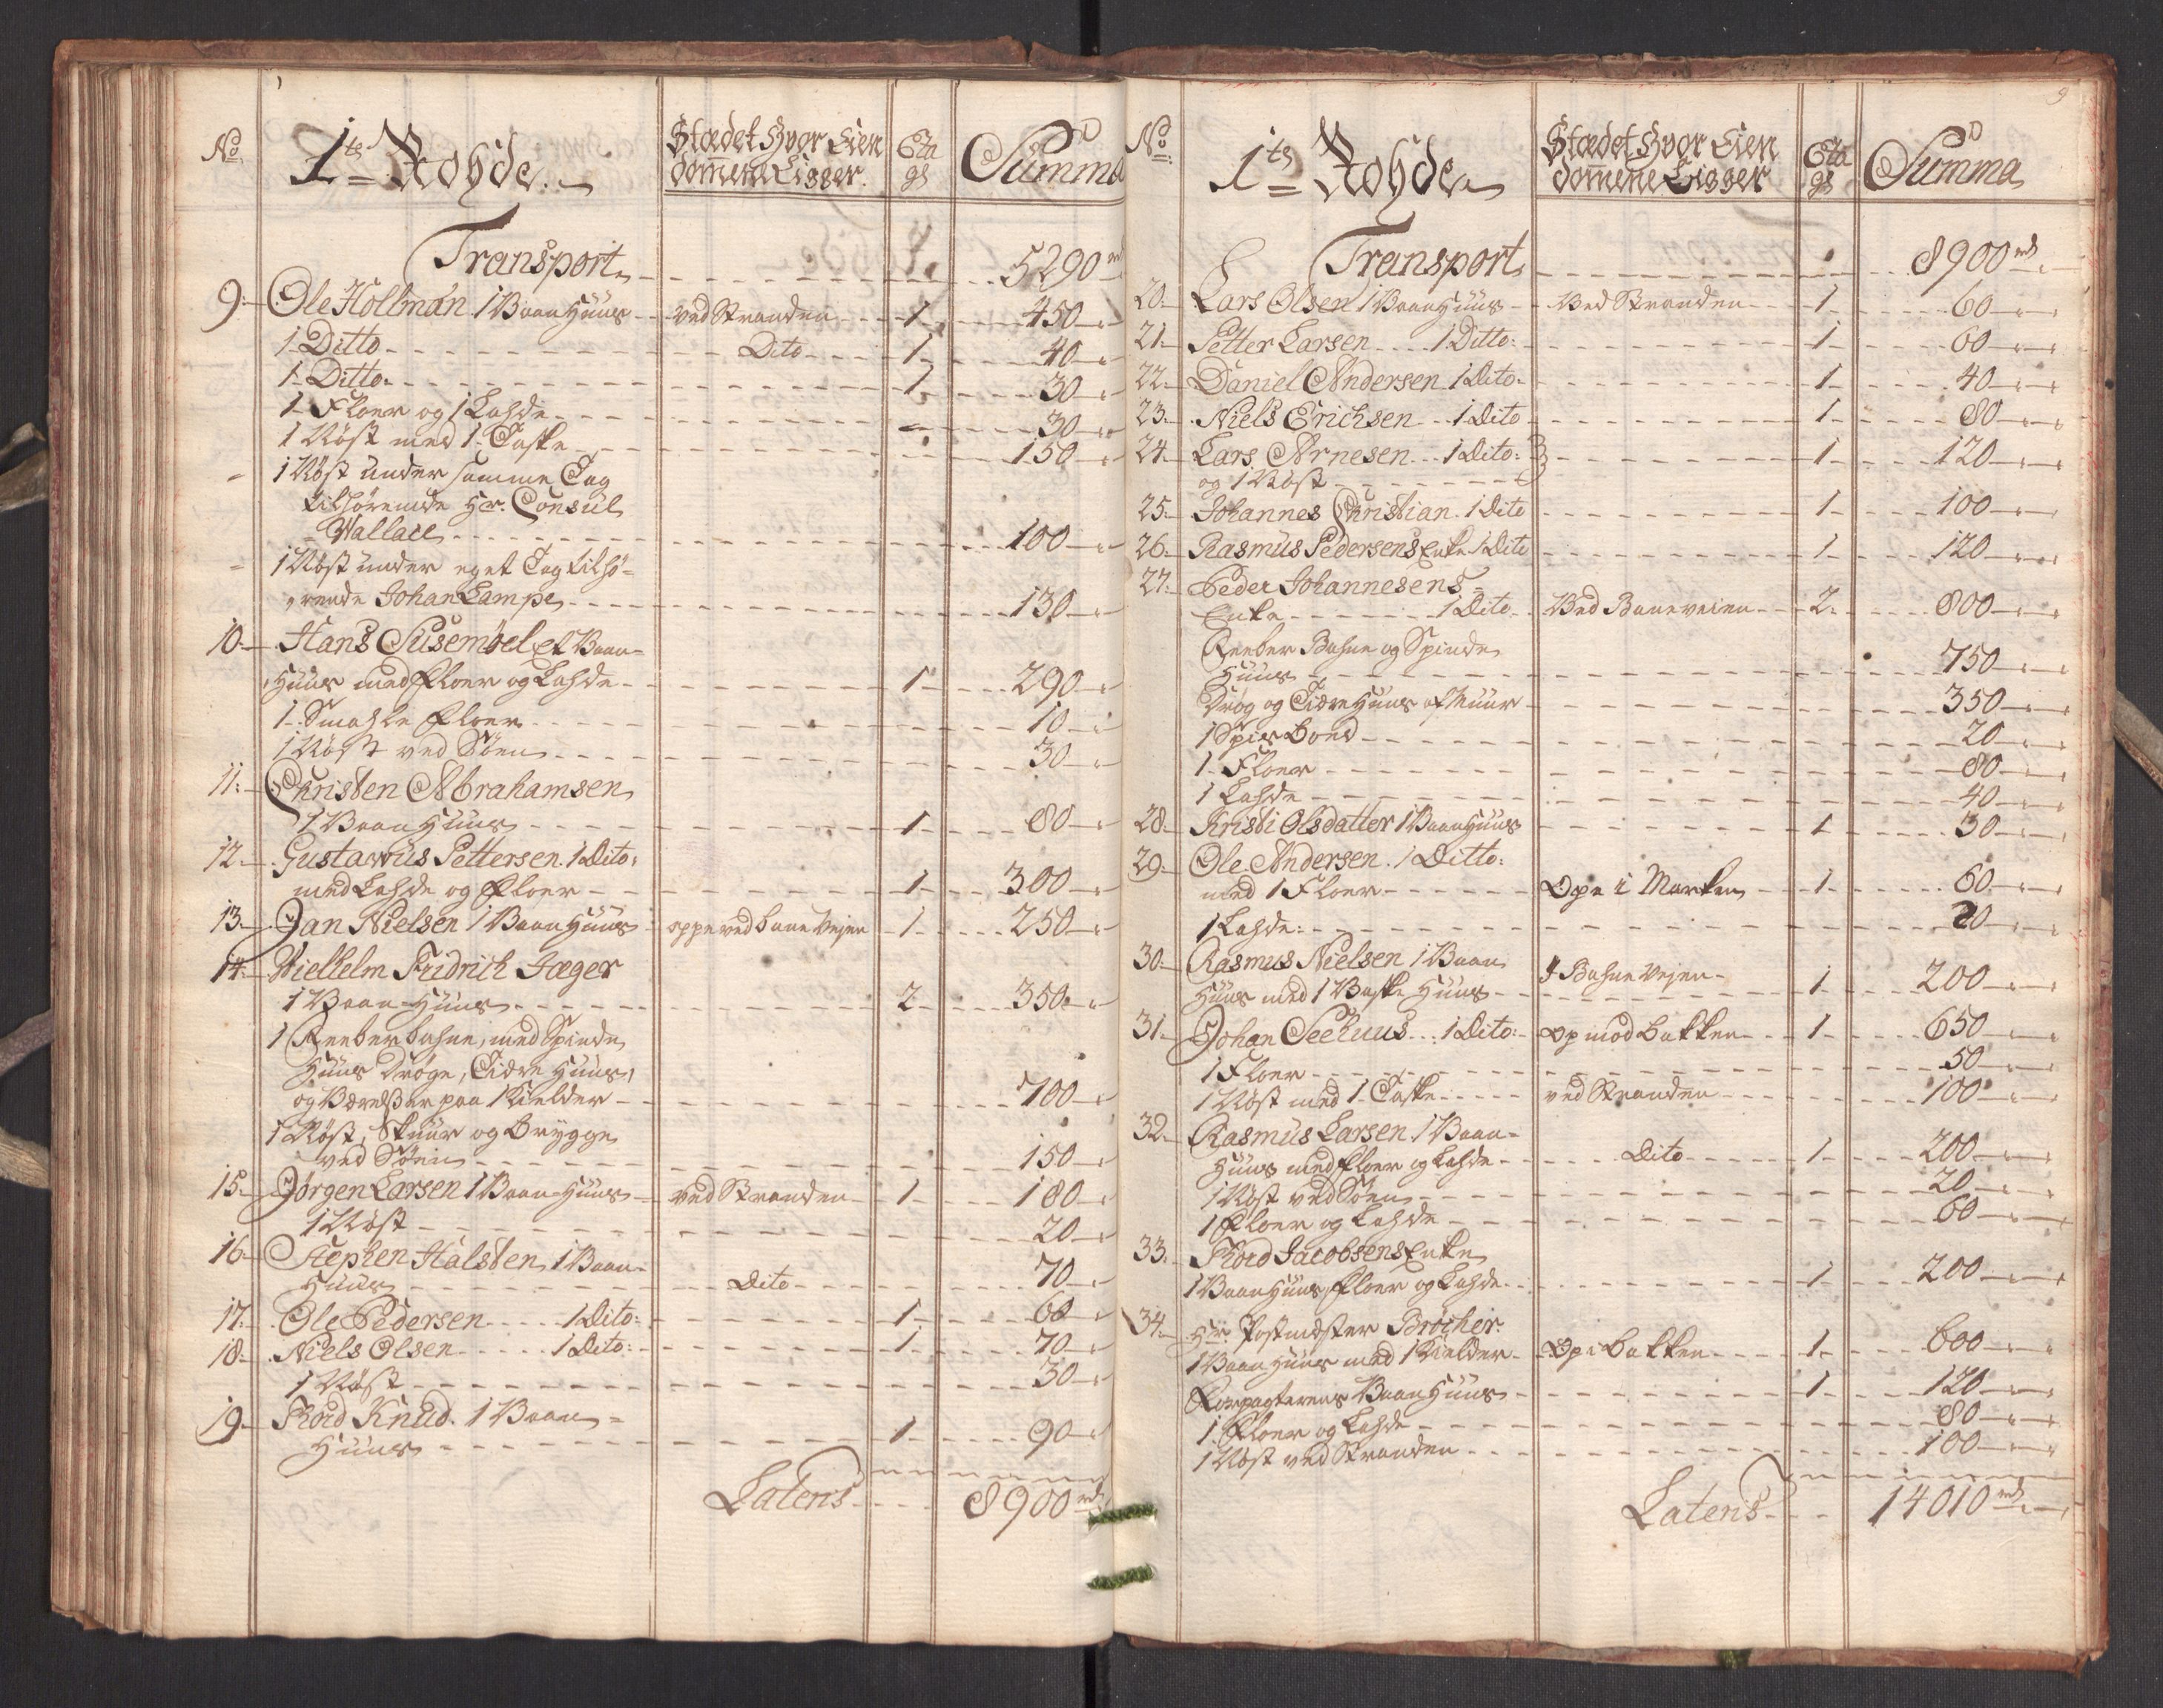 No
1te Rohde
Stædet hvor Eien
dommene Ligger
Eta
ge
Summa
Transport 5290 rd
9. Ole Hollman 1 Vaan Huus ved Stranden 1 450
1 Ditto Dito 1 40
1 Ditto 1 30
1 Floer og 1 Lahde 30
1 Nøst med 1 Taske 150
1 Nøst under samme Tag
tilhørende Hr. Consul
Wallace 100
1 Nøst under eget Tag tilhø-
rende Johan Lampe 130
10. Hans Susemøel Et Vaan-
Huus med Floer og Lahde 1 290
1 Smahle Floer 10
1 Nøst ved Søen 30
11. Christen Abrahamsen
1 Vaan Huus 1 80
12. Gustavus Pettersen 1 Dito
med Lahde og Floer 1 300
13. Jan Nielsen 1 Vaan Huus oppe ved bane Vejen 1 250
14. Wiellelm Fridrich Jæger
1 Vaan Huus 2 350
1 Reeberbahne, med Spinde
Huus Drøge, Tidre Huus,
og Værelser paa 1 Kielder 700
1 Nøst, Skuur og Brygge
ved Søen 150
15. Jørgen Larsen 1 Vaan Huus ved Stranden 1 180
1 Nøst 20
16. Stephen Halsten 1 Vaan-
Huus Dito 70
17. Ole Pedersen 1 Dito 1 60
18. Niels Olsen 1 Dito 1 70
1 Nøst 30
19. Thord Knud. 1 Vaan-
Huus 1 90
Lateris 8900 rd
9
No
1te Rohde
Stædet hvor Eien
dommene Ligger
Eta
ge
Summa
Transport 8900 rd
20. Lars Olsen 1 Vaan Huus Ved Stranden 1 60
21. Petter Larsen 1 Ditto 1 60
22. Daniel Andersen 1 Dito 1 40
23. Niels Erichsen 1 Dito 1 80
24. Lars Arnesen 1 Dito 1 120
og 1 Nøst
25. Johannes Christian 1 Dito 1 100
26. Rasmus Pedersens Enke 1 Dito 1 120
27. Peder Johannesens
Enke 1 Dito Ved Baneveien 2 800
Reeber Bahne og Spinde
Huus 750
Drøg og Tidre Huus af Muur 350
1 Spis Boed 20
1 Floer 80
1 Lahde 40
28. Kristi Olsdatter 1 Vaan Huus 1 30
29. Ole Andersen 1 Ditto
med 1 Floer Ope i Marken 1 60
1 Lahde 20
30. Rasmus Nielsen 1 Vaan
Huus med 1 Vaske Huus I Bahne Vejen 1 200
31. Johan Seehuus 1 Dito Op mod bakken 1 650
1 Floer 50
1 Nøst med 1 Taske ved Stranden 100
32. Rasmus Larsen 1 Vaan-
Huus med Floer og Lahde Dito 1 200
1 Nøst ved Søen 20
1 Floer og Lahde 60
33. Thord Jacobsens Enke
1 Vaan Huus, Floer og Lahde 1 200
34. Hr. Postmester Brøcher
1 Vaan Huus med 1 Kielder Op i Bakken 1 600
Forpagterens Vaan Huus 1 120
1 Floer og Lahde 80
1 Nøst ved Stranden 100
Lateris 14010 rd